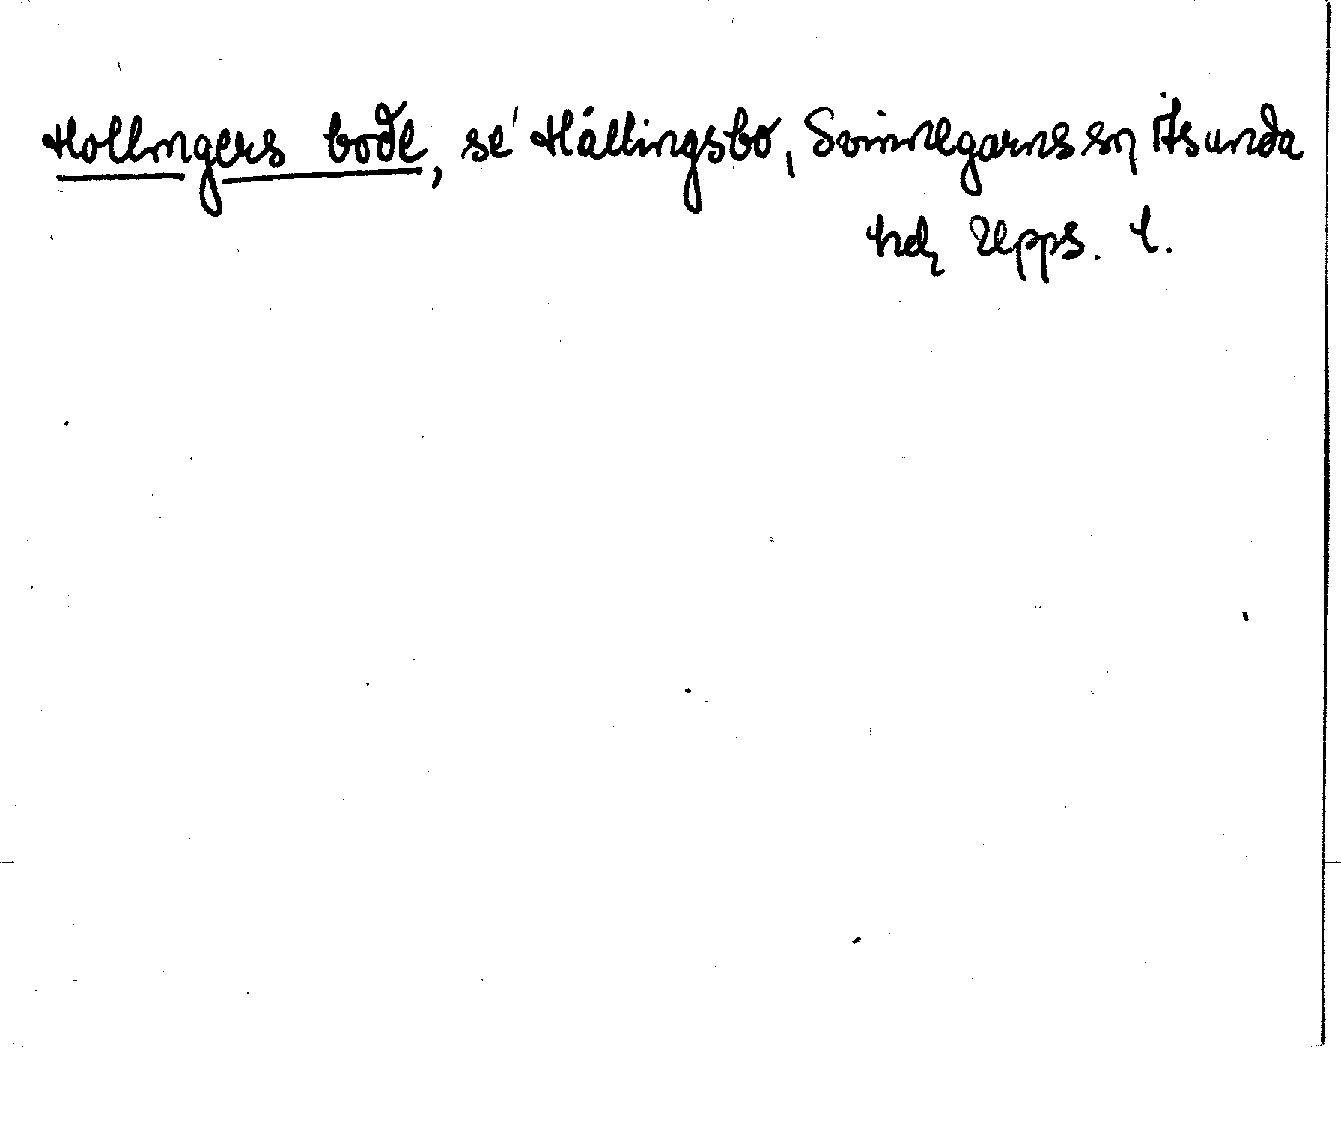 Hollingers bode, se Hällingsbo, Svinnegarns sn Åsunda
hd, Upps. l.